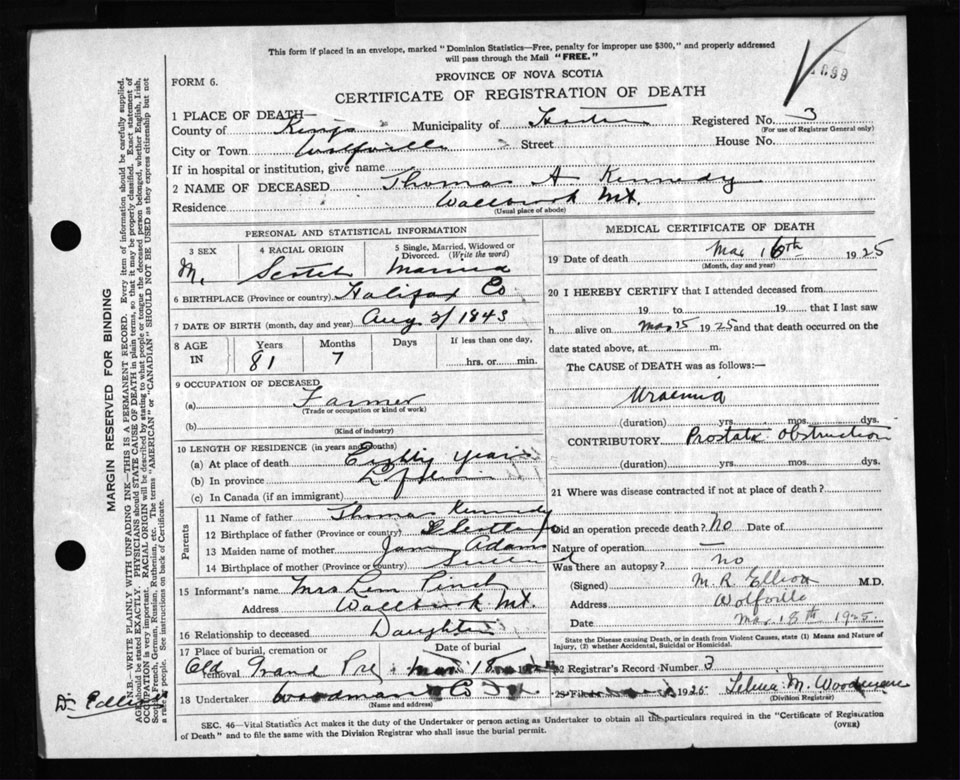 This form if placed in an envelope, marked "Dominion Statistics—Free, penalty for improper use $300," and properly addressed
will pass through the Mail "FREE."
FORM 6.
PROVINCE OF NOVA SCOTIA
CERTIFICATE OF REGISTRATION OF DEATH
1 PLACE OF DEATH—
County of Kings Municipality of Registered No. 3
(For use of Registrar General only)
City or Town Wolfville Street House No.
If in hospital or institution, give name
2 NAME OF DECEASED Thomas A Kennedy
Residence Wallbrook Mt.
(Usual place of abode)
PERSONAL AND STATISTICAL INFORMATION
3 SEX 4 RACIAL ORIGIN 5 Single, Married, Widowed or Divorced. (Write the word)
M. Scotch Married
6 BIRTHPLACE (Province or country) Halifax Co
7 DATE OF BIRTH (month, day and year) Aug 1843
8 AGE IN Years Months Days If less than one day,
81 7 hrs. or min.
9 OCCUPATION OF DECEASED
(a) Farmer
(Trade or occupation or kind of work)
(b)
(Kind of industry)
10 LENGTH OF RESIDENCE (in years and months)
(a) At place of death Eighty years
(b) In province
(c) In Canada (if an immigrant)
Parents
11 Name of father Thomas Kennedy
12 Birthplace of father (Province or country)
13 Maiden name of mother Adams
14 Birthplace of mother (Province or country)
15 Informant's name Mrs Lem Pinch
Address Wallbrook Mt.
16 Relationship to deceased Daughter
17 Place of burial, cremation or removal Date of burial
Old Grand Pre 18
18 Undertaker Woodman
(Name and address)
MEDICAL CERTIFICATE OF DEATH
19 Date of death Mar 16th 1925
(Month, day and year)
20 I HEREBY CERTIFY that I attended deceased from
19 to 19 that I last saw
h alive on Mar 15 1925 and that death occurred on the
date stated above, at m.
The CAUSE of DEATH was as follows:—
Uraemia
(duration) yrs. mos. dys.
CONTRIBUTORY Prostatic Obstruction
(duration) yrs. mos. dys.
21 Where was disease contracted if not at place of death?
Did an operation precede death? No Date of
Nature of operation —
Was there an autopsy? no
(Signed) M. R. Elliott M.D.
Address Wolfville
Date Mar 18th 1925
State the Disease causing Death, or in death from Violent Causes, state (1) Means and Nature of
Injury, (2) whether Accidental, Suicidal or Homicidal.
22 Registrar's Record Number 3
1925 Selina M. Woodman
(Division Registrar)
SEC. 46—Vital Statistics Act makes it the duty of the Undertaker or person acting as Undertaker to obtain all the particulars required in the "Certificate of Registration
of Death" and to file the same with the Division Registrar who shall issue the burial permit.
(OVER)
MARGIN RESERVED FOR BINDING
N.B.—WRITE PLAINLY WITH UNFADING INK—THIS IS A PERMANENT RECORD. Every item of information should be carefully supplied.
AGE should be stated EXACTLY. PHYSICIANS should STATE CAUSE OF DEATH in plain terms, so that it may be properly classified. Exact statement of
OCCUPATION is very important. RACIAL ORIGIN will be described by stating to what people or tongue the deceased person belonged, whether English, Irish,
Scotch, French, German, Russian, Ruthenian, etc. The terms "AMERICAN" or "CANADIAN" SHOULD NOT BE USED as they express citizenship but not
a race or people. See instructions on back of Certificate.